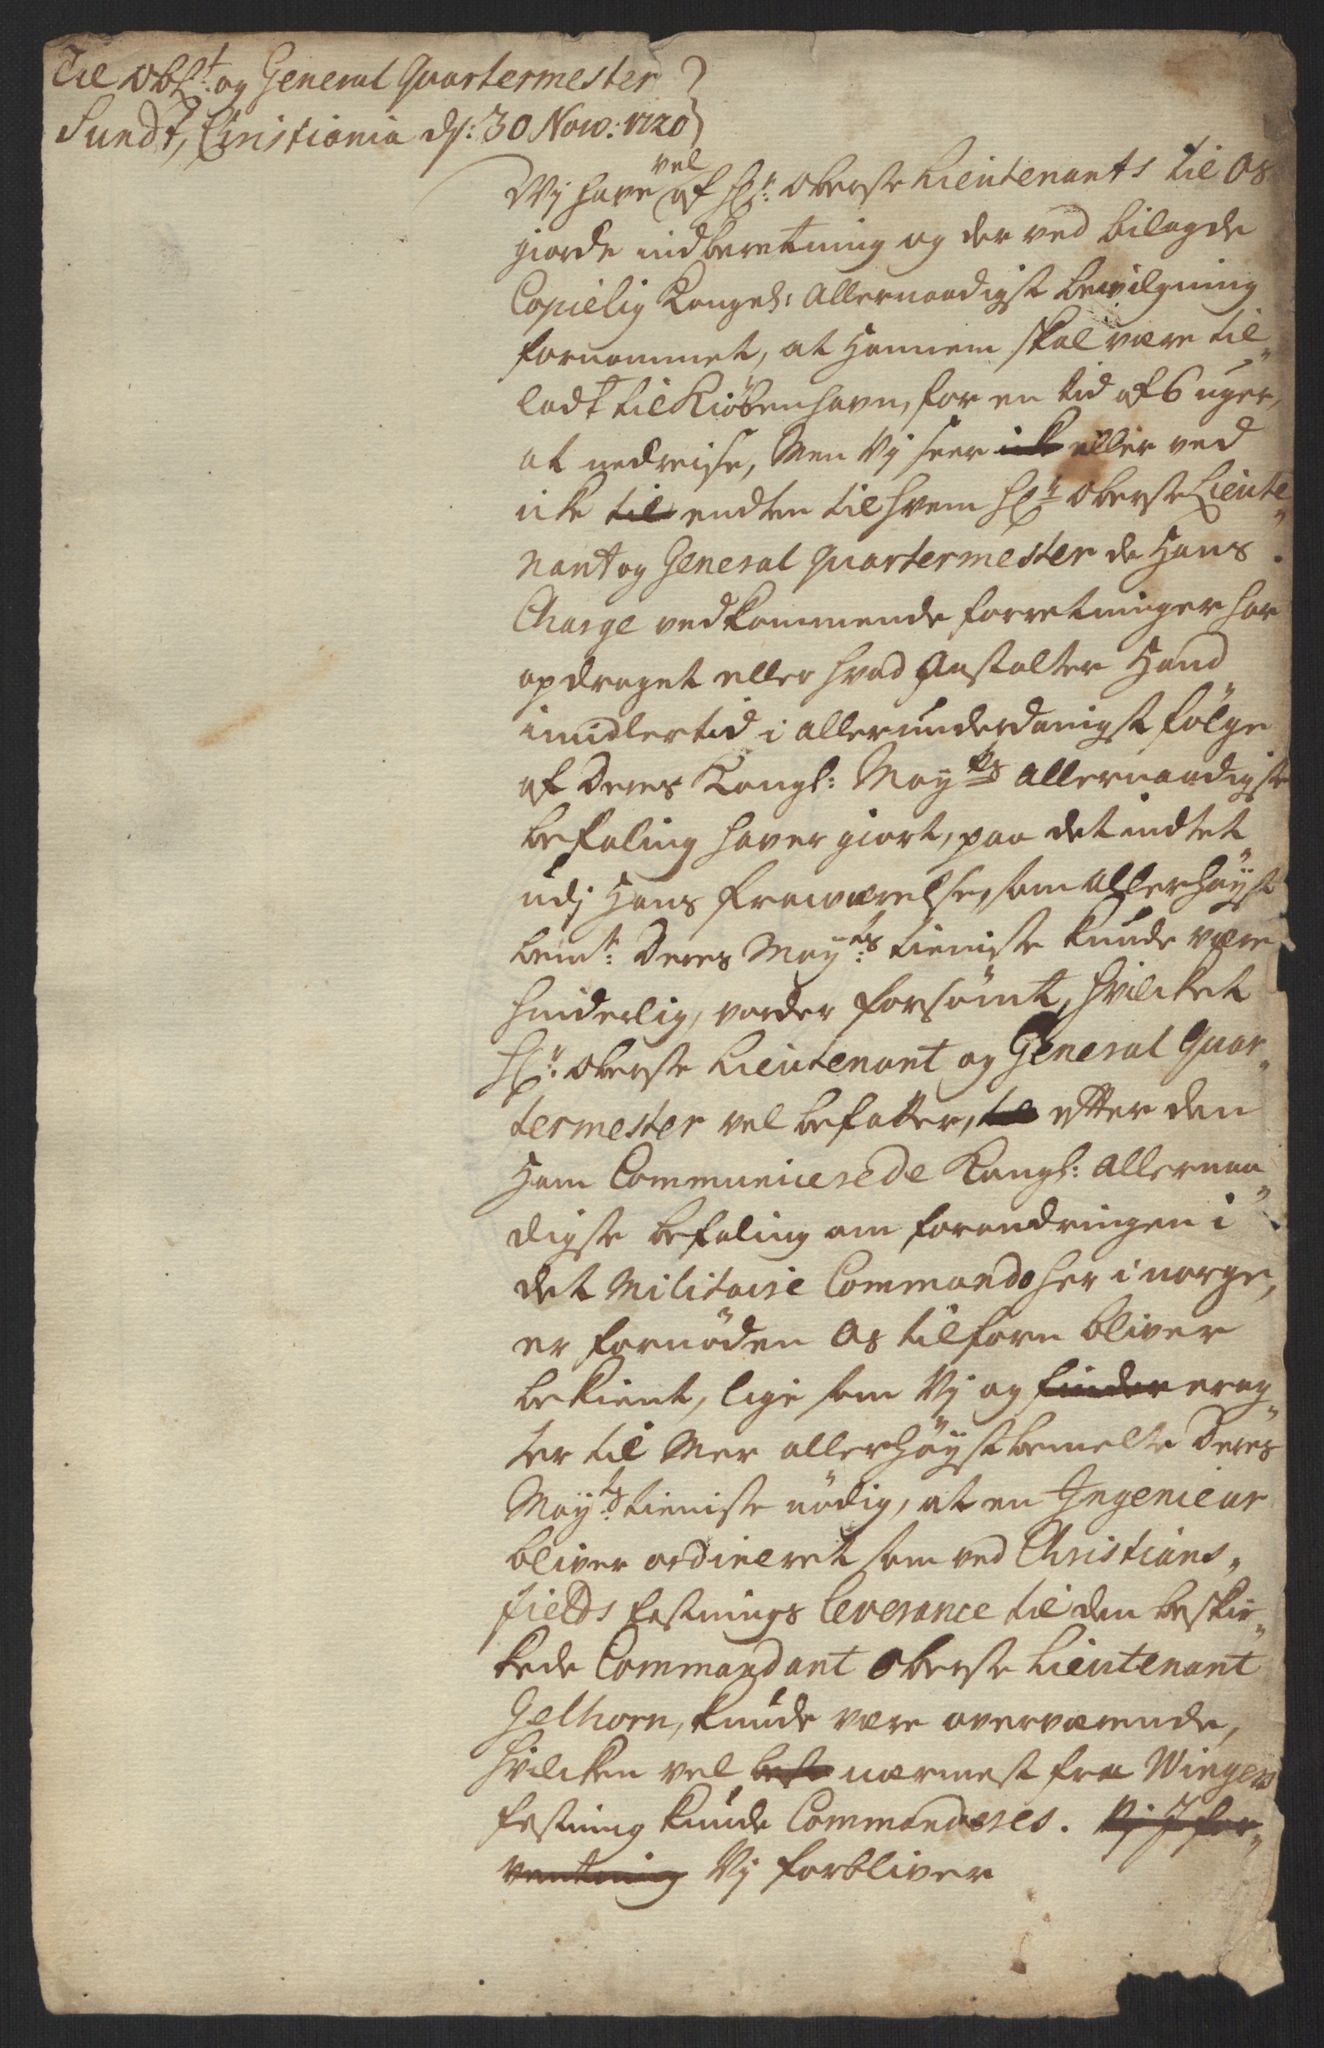 Til Obst: og General Quartermester
Sundt, Christiania d: 30 Nov: 1720
vel
Wj have af Hr: Oberste Lieutenants til Os
giorde indberetning og der ved bilagde
Copielig Kongel: Allernaadigst bevilgning
fornommet, at Hannem skal være til„
ladt til Kiöbenhavn, for en tid af 6 uger,
at nedreise, Men Vj seer ick eller ved
icke til endten til hvem Hr: Oberste Lieute„
nant og General Quartermester de Hans
Charge vedkommende forretninger har
opdraget eller hvad Anstalter Hand
imidlertid i allerunderdanigst fölge
af Deres Kongl: Maytts allernaadigste
befaling haver giort, paa det indtet
udj Hans fraværelse, som allerhöyst
bemte: Deres Mayts: tieniste kunde være
hinderlig, vorder forsömt, hvilcket
Hr: Oberste Lieutenant og General Quar„
termester vel befatter, til efter den
Ham Communicerede Kongl: allernaa„
digste befaling om forandringen i
det Militaire Commando her i norge,
er fornöden Os tilforn bliver
bekient, lige som Vj og finder erag„
ter til Mer allerhöystbemelte Deres
Mayts: tieniste nödig, at en Ingenieur
bliver ordineret som ved Christians„
fields festnings leverance til den beskic„
kede Commandant Oberste Lieutenant
Gelhorn, kunde være overværende,
hvilcken vel best nærmest fra Wingers
festning kunde Commanderes. Vj I for„
ventning Vj forbliver